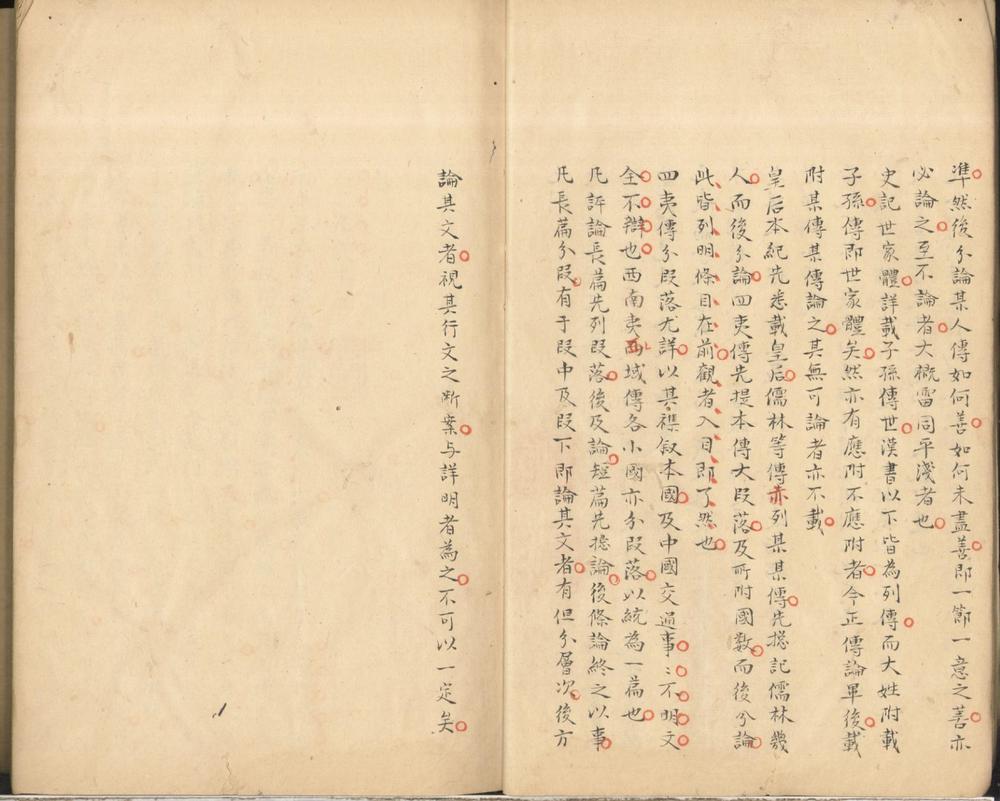 準然後分論某人傳如何善如何未盡善即一節一意之善亦
必論之至不論者大概雷同平淺者也
史記世家體詳載子孫傳世漢書以下皆為列傳而大姓附載
子孫傳即世家體矣然亦有應附不應附者今正傳論畢後載
附某傳某傳論之其無可論者亦不載
皇后本紀先悉載皇后儒林等傳亦列某某傳先揔記儒林幾
人而後分論四夷傳先提本傳大段落及所附國數而後分論
此皆列明條目在前觀者入目即了然也
四夷傳分段落尤詳以其襍敘本國及中國交通事〻不明文
全不辯也西南夷西域傳各小國亦分段落以統為一篇也
凡評論長篇先列段落後及論短篇先揔論後條論終之以事
凡長篇分段有于段中及段下即論其文者有但分層次後方
論其文者視其行文之斷案与詳明者為之不可以一定矣